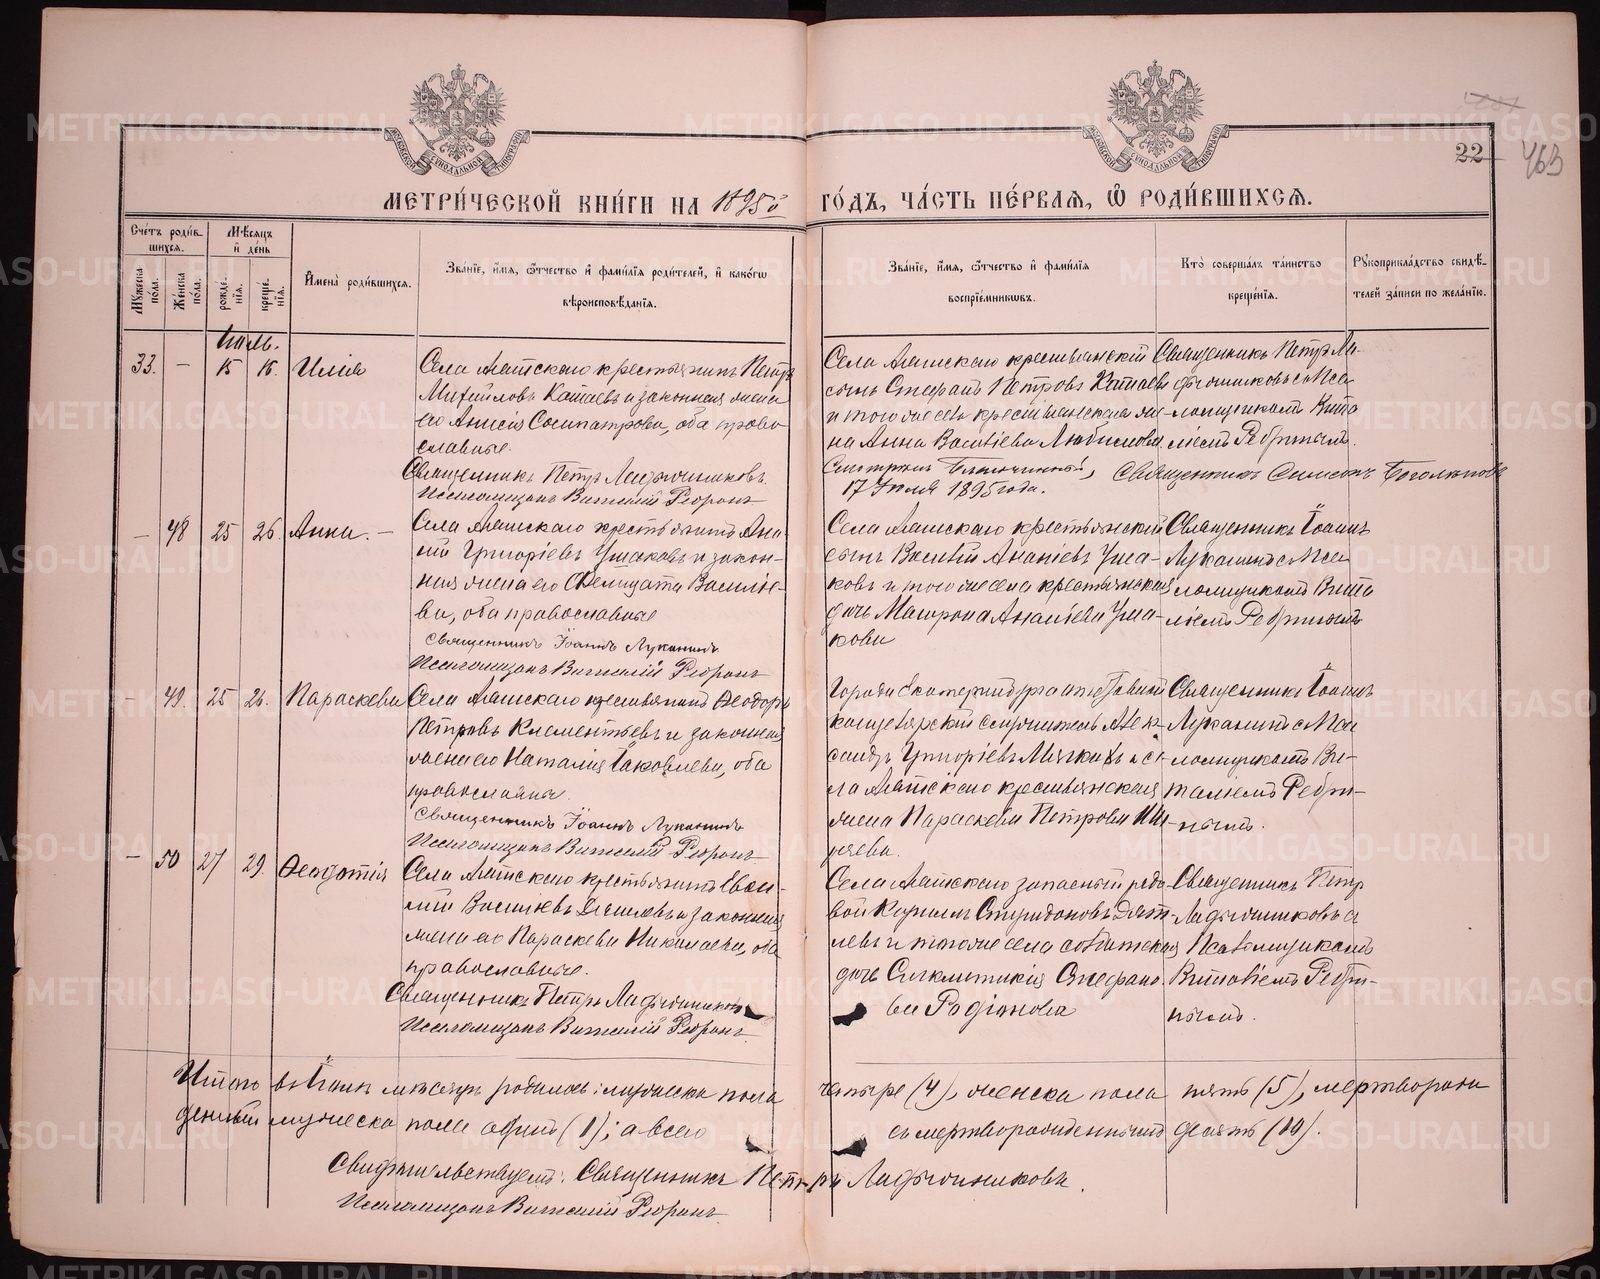 22
463
МЕТРИ́ЧЕСКОЙ КНИ́ГИ НА 1895й ГО́ДЪ, ЧА́СТЬ ПЕ́РВАЯ, Ѡ РОДИ́ВШИХСЯ.
Сче́тъ роди́вшихся.
Мꙋжеска по́ла.
Же́нска по́ла.
Мѣ́сяцъ и҆ де́нь
рожде́нїя.
креще́нїя.
И҆мена̀ роди́вшихся.
Зва́нїе, и҆́мя, ѻ҆́тчество и҆ фами́лїя роди́телей, и҆ како́гѡ
вѣроисповѣ́данїя.
Зва́нїе, и҆́мя, ѻ҆́тчество и҆ фами́лїя
воспрїе́мникѡвъ.
Кто̀ соверша́лъ та́инство
креще́нїя.
Рꙋкоприкла́дство свидѣ́-
телей за́писи по жела́нїю.
Іюль.
33. – 15 16. Илія
Села Аятскаго крестьянинъ Петръ
Михайловъ Катаевъ и законная жена
его Анисія Сосипатрова, оба право-
славные.
Священникъ Петръ Ладыжниковъ
Псаломщикъ Виталий
Села Аятскаго крестьянскій
сынъ Стефанъ Петровъ Катаевъ
и того же села крестьянская же-
на Анна Васильева Любимова
Священникъ Петръ Ла-
дыжниковъ с Пса-
ломщикомъ Вита-
ліемъ
Смотрѣлъ Благочинный, Священникъ Симеонъ
17 Июля 1895 года.
– 48 25 26. Анна. –
Села Аятскаго крестьянинъ Ана-
ній Григоріевъ Ушаковъ и закон-
ная жена его Фелицата Василье-
ва, оба православные
Священникъ Іоаннъ Луканинъ
Псаломщикъ Виталій
Села Аятскаго крестьянскій
сынъ Василій Ананіевъ Уша-
ковъ и того же села крестьянская
дочь Матрона Ананіева Уша-
кова
Священникъ Іоаннъ
Луканинъ с Пса-
ломщикомъ Вита-
ліемъ
– 49. 25 26. Параскева
Села Аятскаго крестьянинъ Ѳеодоръ
Петровъ Клементьевъ и законная
жена его Наталія Іаковлева, оба
православные.
Священникъ Іоаннъ Луканинъ
Псаломщикъ Виталій
Города Екатеринбурга
канцелярскій служитель Алек-
сандръ Григоріевъ Мягковъ и се-
ла Аятскаго крестьянская
жена Параскева Петрова
Священникъ Іоаннъ
Луканинъ с Пса-
ломщикомъ Ви-
таліемъ
– 50 27 29. Ѳеодотія
Села Аятскаго крестьянинъ
Василіевъ и законная
жена его Параскева Николаева, оба
православные.
Священникъ Петръ Ладыжниковъ
Псаломщикъ Виталій
Села Аятскаго запасный рядо-
вой Спиридоновъ Дят-
левъ и того же села солдатская
дочь Синклитикія Стефано-
ва Родіонова
Священникъ Петръ
Ладыжниковъ с
Псаломщикомъ
Виталіемъ
Итого въ Іюлѣ мѣсяцѣ родилось: мужеска пола четыре (4), женска пола пять (5), мертворож-
денный мужеска пола одинъ (1); а всего съ мертворожденнымъ десять (10).
Свидѣтельствуемъ: Священникъ Петръ Ладыжниковъ.
Псаломщикъ Виталій
METRIKI.GASO-URAL.RU